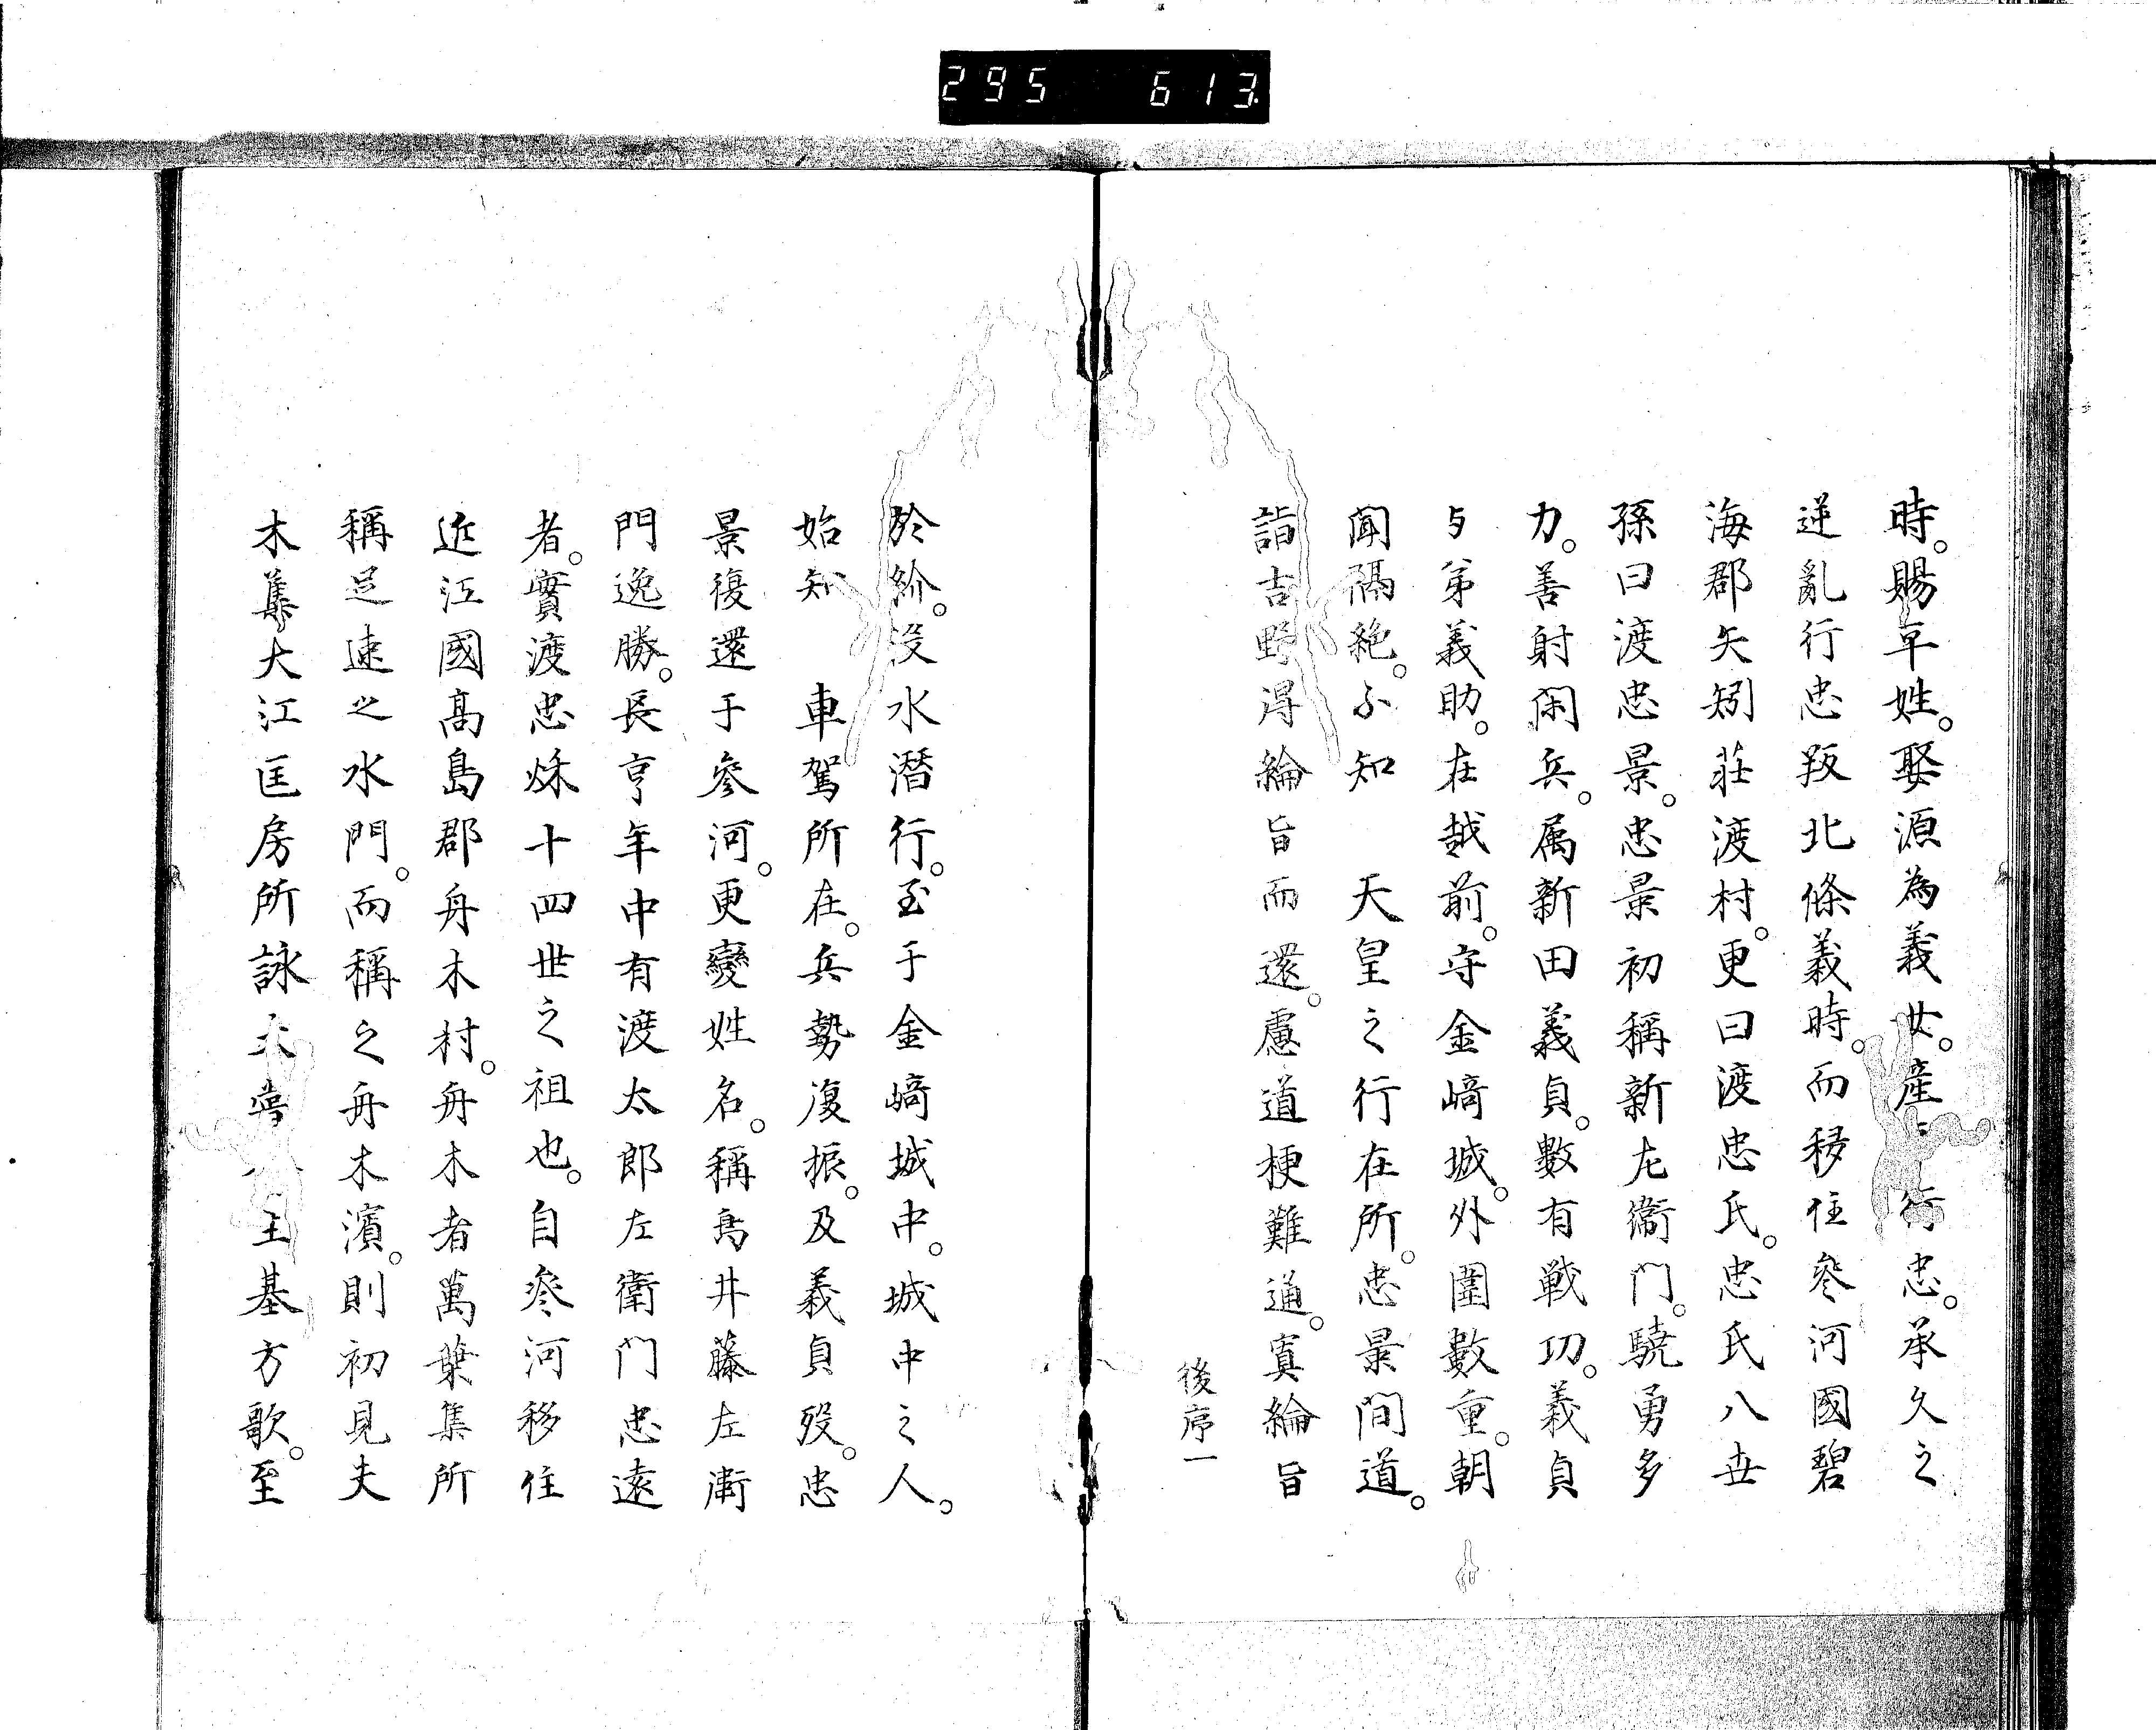 295 613
時。賜平姓。娶源為義女。產行忠。承久之
逆亂行忠叛北條義時。而移住參河國碧
海郡矢矧莊渡村。更曰渡忠氏。忠氏八世
孫曰渡忠景。忠景初稱新左衞門。驍勇多
力。善射閑兵。属新田義貞。數有戰功。義貞
与弟義助。在越前。守金﨑城。外圍數重。朝
聞隔絶。不知　天皇之行在所。忠景間道。
詣吉野得綸旨而還。慮道梗難通。寘綸旨
後序一
於紒。没水潜行。至于金﨑城中。城中之人。
始知　車駕所在。兵勢復振。及義貞歿。忠
景復還于參河。更變姓名。稱鳥井藤左衞
門逸勝。長亨年中有渡太郎左衞門忠遠
者。實渡忠烁十四世之祖也。自參河移住
近江國髙島郡舟木村。舟木者萬葉集所
稱足速之水門。而稱之舟木濱。則初見夫
木集大江匡房所詠大嘗主基方歌。至